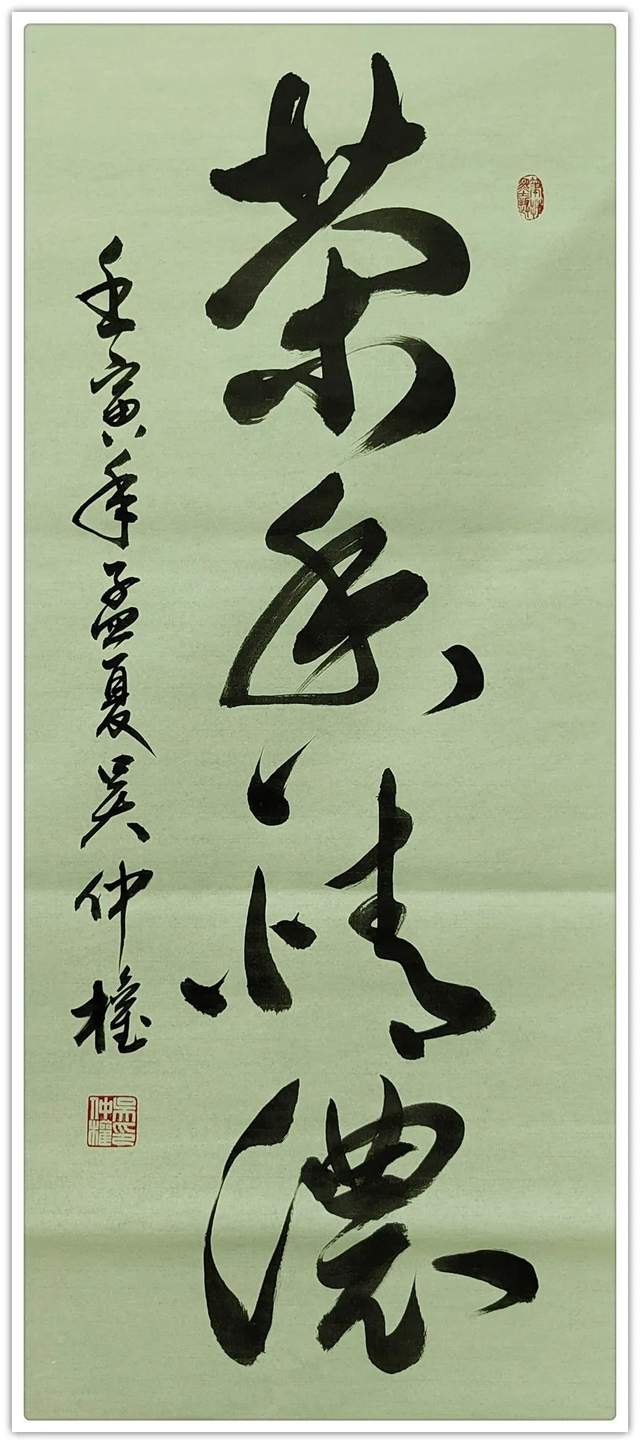 茶香情濃
壬寅年孟夏吴仲權
吴仲權印